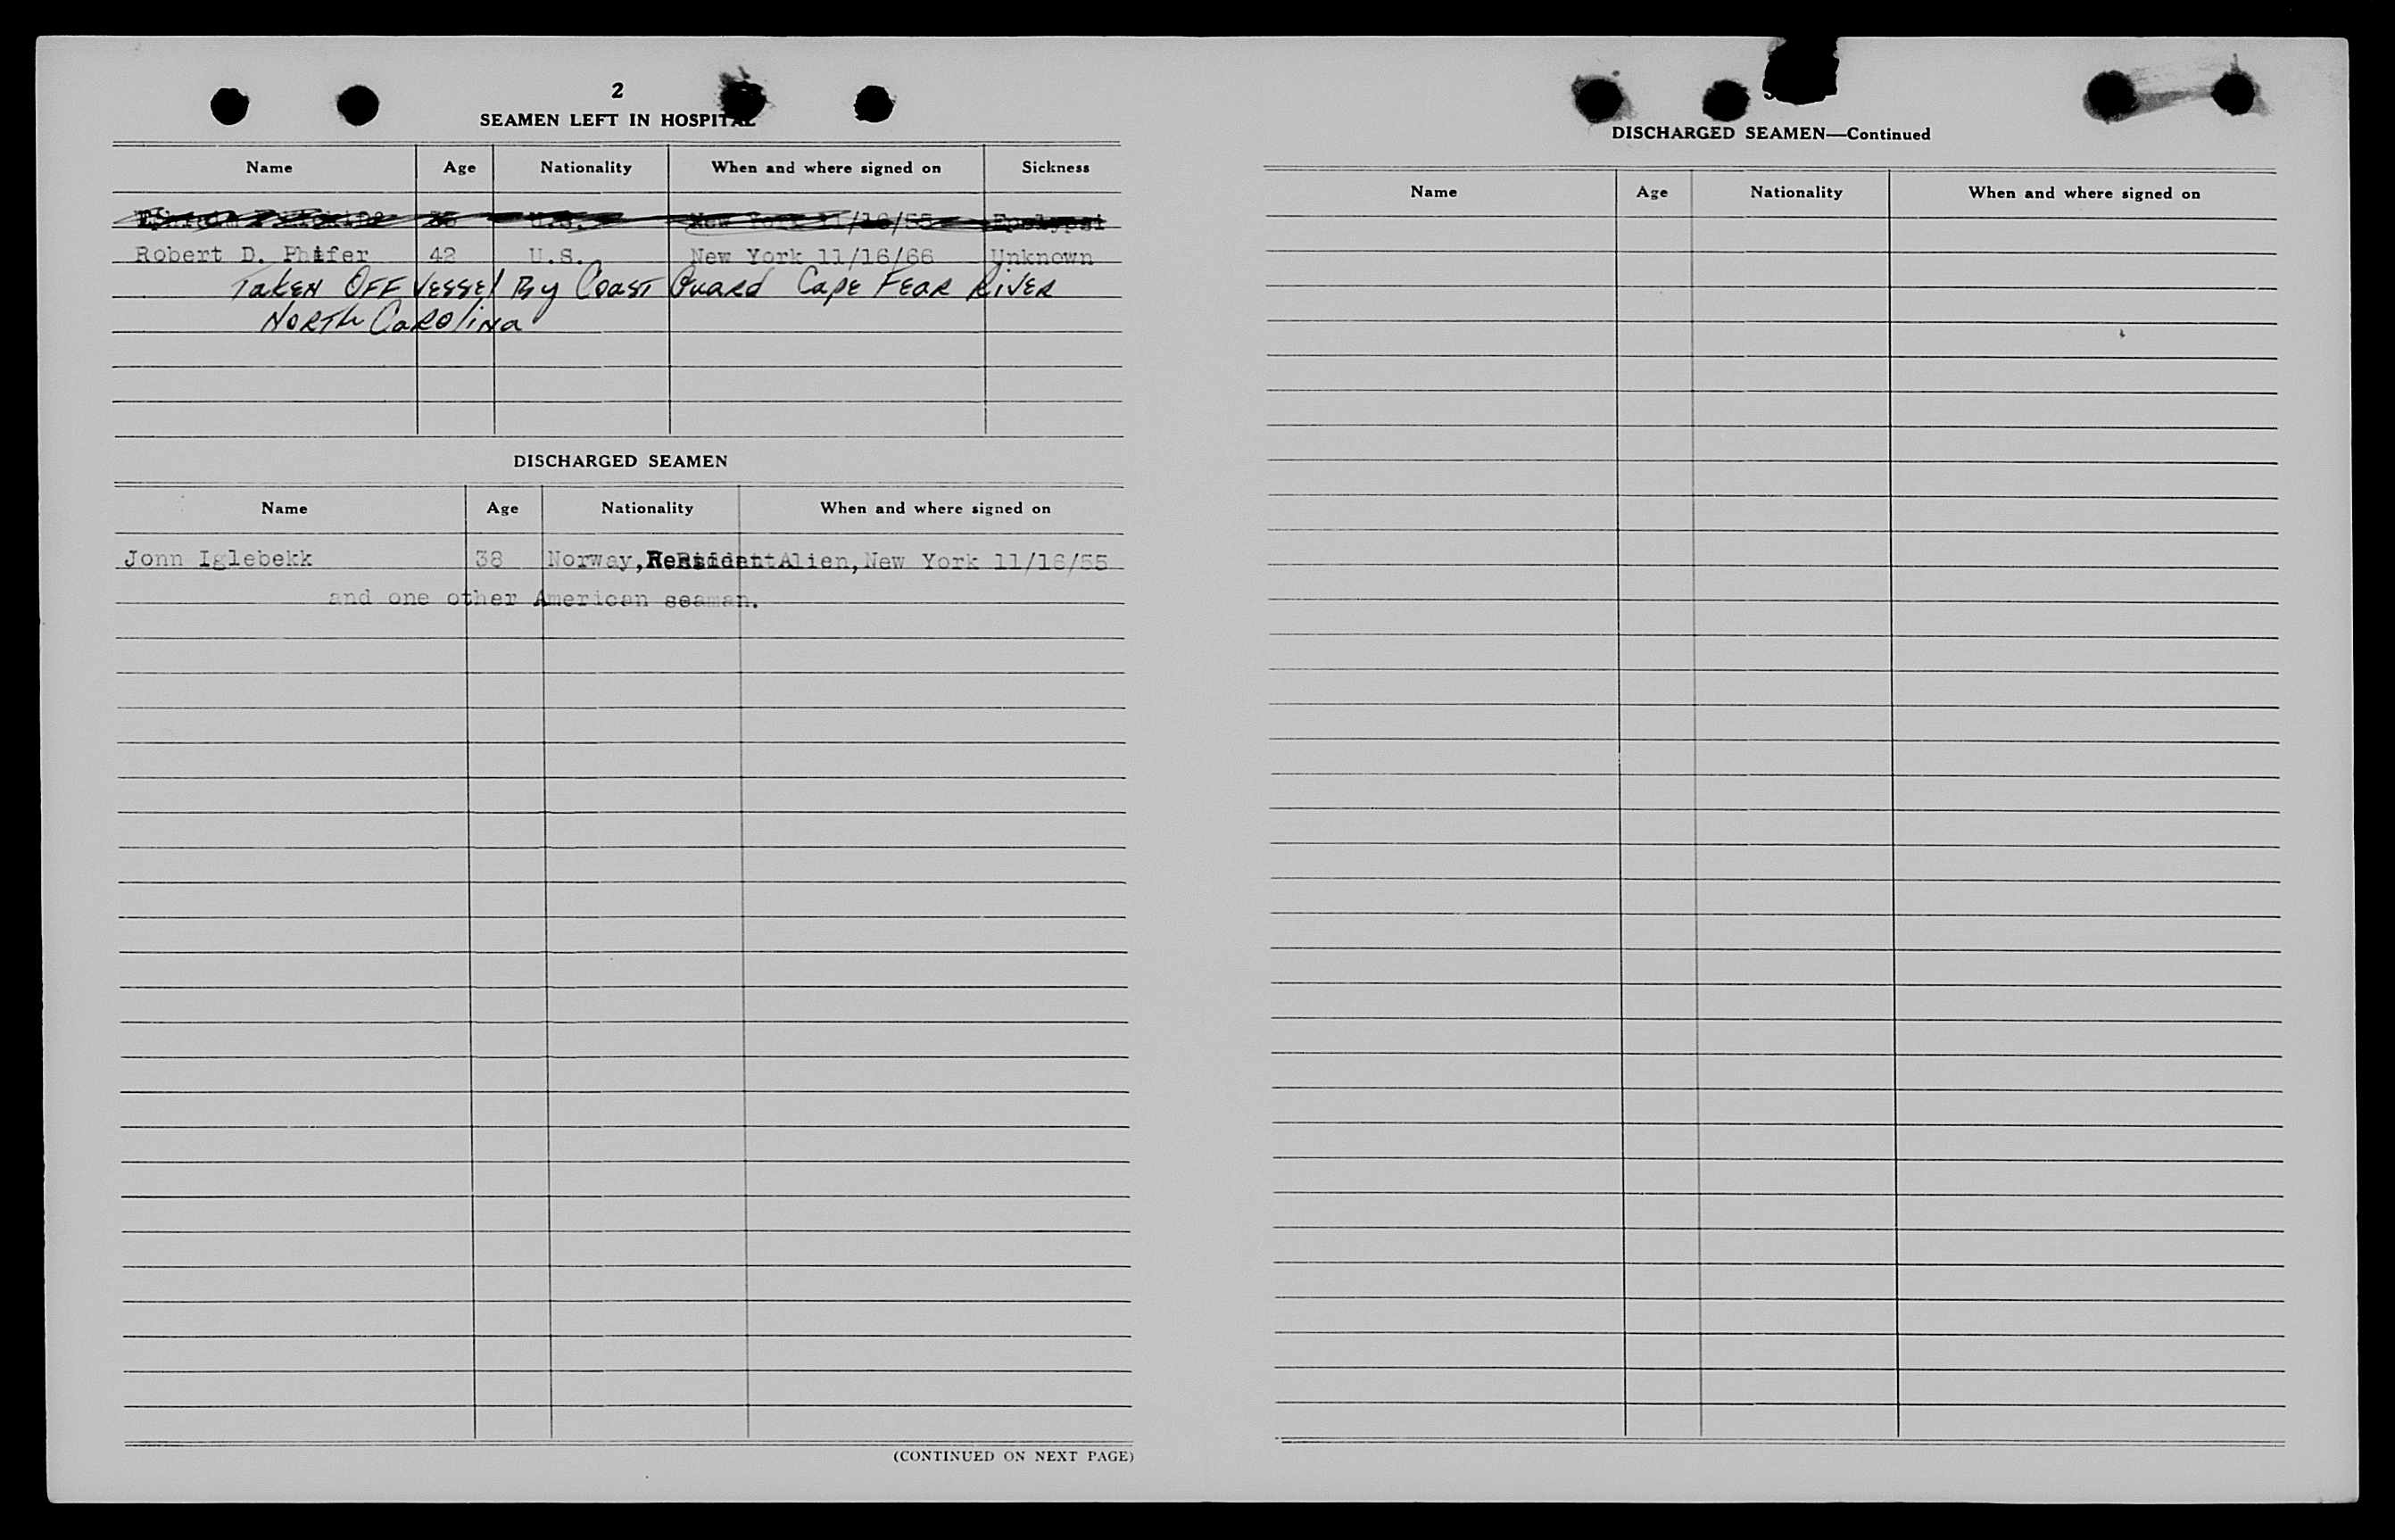 2
SEAMEN LEFT IN HOSPITAL
Name Age Nationality When and where signed on Sickness
35 U.S. New York 11/16/55 Epelypsi
Robert D. Phifer 42 U.S. New York 11/16/66 Unknown
Taken Off Vessel By Coast Guard Cape Fear River
North Carolina
DISCHARGED SEAMEN
Name Age Nationality When and where signed on
Jonn Iglebekk 38 Norway, Resident Alien, New York 11/16/55
and one other American seaman.
(CONTINUED ON NEXT PAGE)
DISCHARGED SEAMEN—Continued
Name Age Nationality When and where signed on